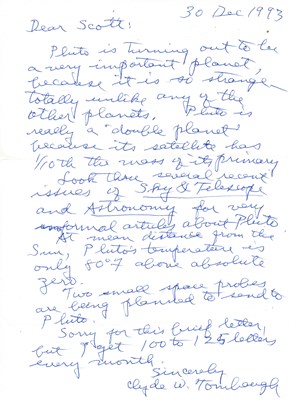 30 Dec 1993
Dear Scott:
Pluto is turning out to be
a very important planet,
because it is so strange–
totally unlike any of the
other planets. Pluto is
really a "double planet"
because its satellite has
1/10th the mass of its primary
Look thru several recent
issues of Sky & Telescope
and Astronomy for very
informal articles about Pluto
At mean distance from the
Sun, Pluto's temperature is
only 80°F above absolute
zero.
Two small space probes
are being planned to send to
Pluto.
Sorry for this brief letter,
but I get 100 to 125 letters
every month.
Sincerely
Clyde W. Tombaugh